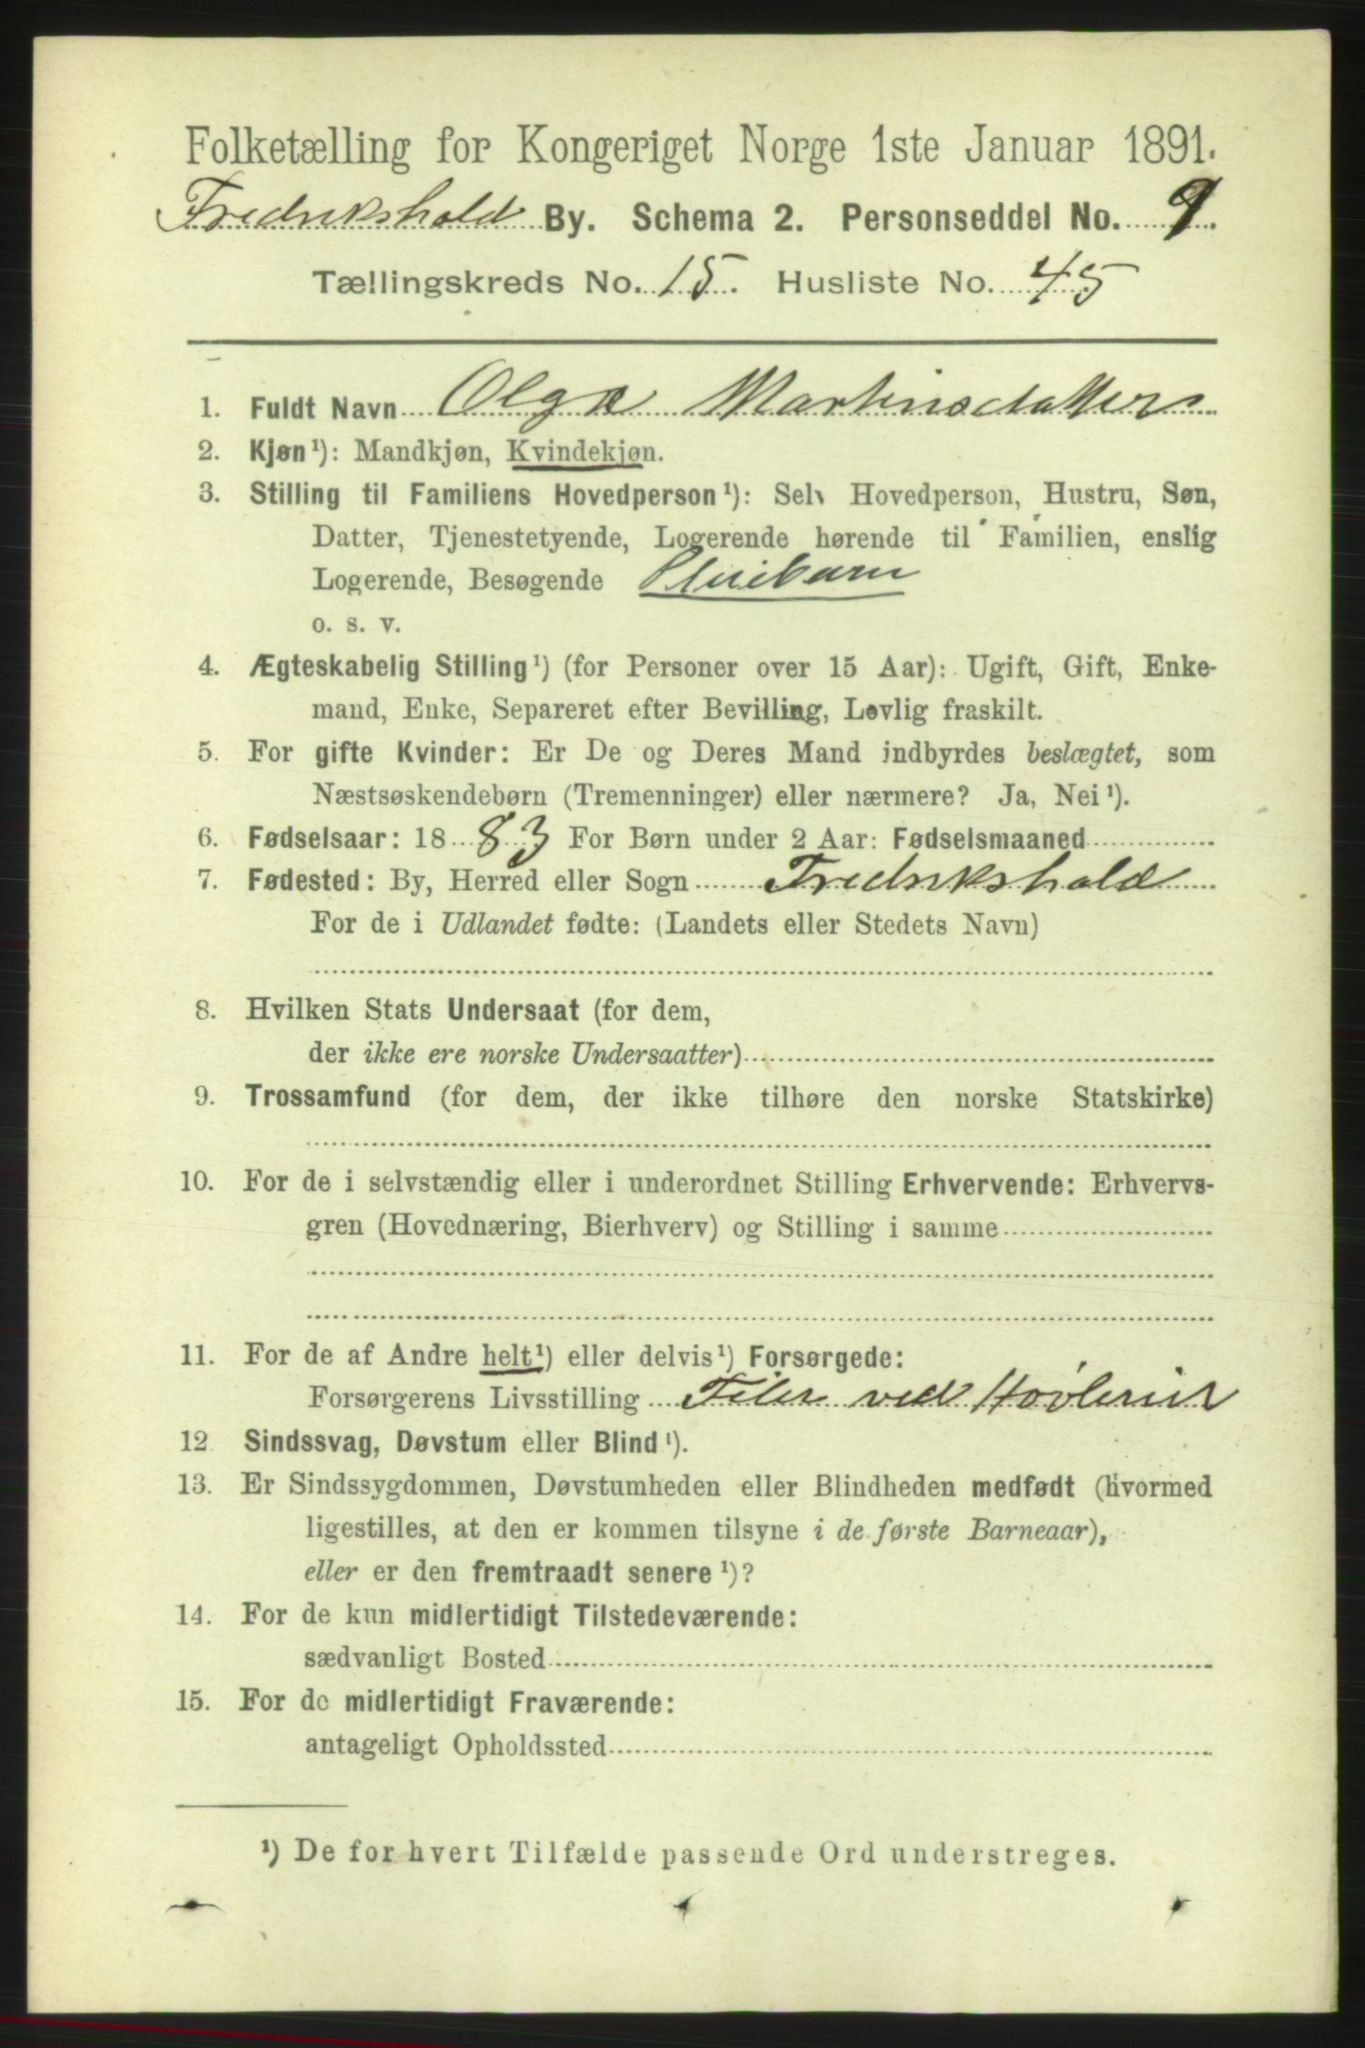 Folketælling for Kongeriget Norge 1ste Januar 1891.
Fredrikshald By. Schema 2. Personseddel No. 9.
Tællingskreds No. 15. Husliste No. 45
1. Fuldt Navn Olga Martinsdatter
2. Kjøn¹): Mandkjøn, Kvindekjøn.
3. Stilling til Familiens Hovedperson¹): Selv Hovedperson, Hustru, Søn,
Datter, Tjenestetyende, Logerende hørende til Familien, enslig
Logerende, Besøgende Pleiebarn
o. s. v.
4. Ægteskabelig Stilling¹) (for Personer over 15 Aar): Ugift, Gift, Enke-
mand, Enke, Separeret efter Bevilling, Lovlig fraskilt.
5. For gifte Kvinder: Er De og Deres Mand indbyrdes beslægtet, som
Næstsøskendebørn (Tremenninger) eller nærmere? Ja, Nei¹).
6. Fødselsaar: 1883 For Børn under 2 Aar: Fødselsmaaned
7. Fødested: By, Herred eller Sogn Fredrikshald
For de i Udlandet fødte: (Landets eller Stedets Navn)
8. Hvilken Stats Undersaat (for dem,
der ikke ere norske Undersaatter)
9. Trossamfund (for dem, der ikke tilhøre den norske Statskirke)
10. For de i selvstændig eller i underordnet Stilling Erhvervende: Erhvervs-
gren (Hovednæring, Bierhverv) og Stilling i samme
11. For de af Andre helt¹) eller delvis¹) Forsørgede:
Forsørgerens Livsstilling Filer ved Høvleriet
12 Sindssvag, Døvstum eller Blind¹).
13. Er Sindssygdommen, Døvstumheden eller Blindheden medfødt (hvormed
ligestilles, at den er kommen tilsyne i de første Barneaar),
eller er den fremtraadt senere¹)?
14. For de kun midlertidigt Tilstedeværende:
sædvanligt Bosted
15. For de midlertidigt Fraværende:
antageligt Opholdssted
¹) De for hvert Tilfælde passende Ord understreges.